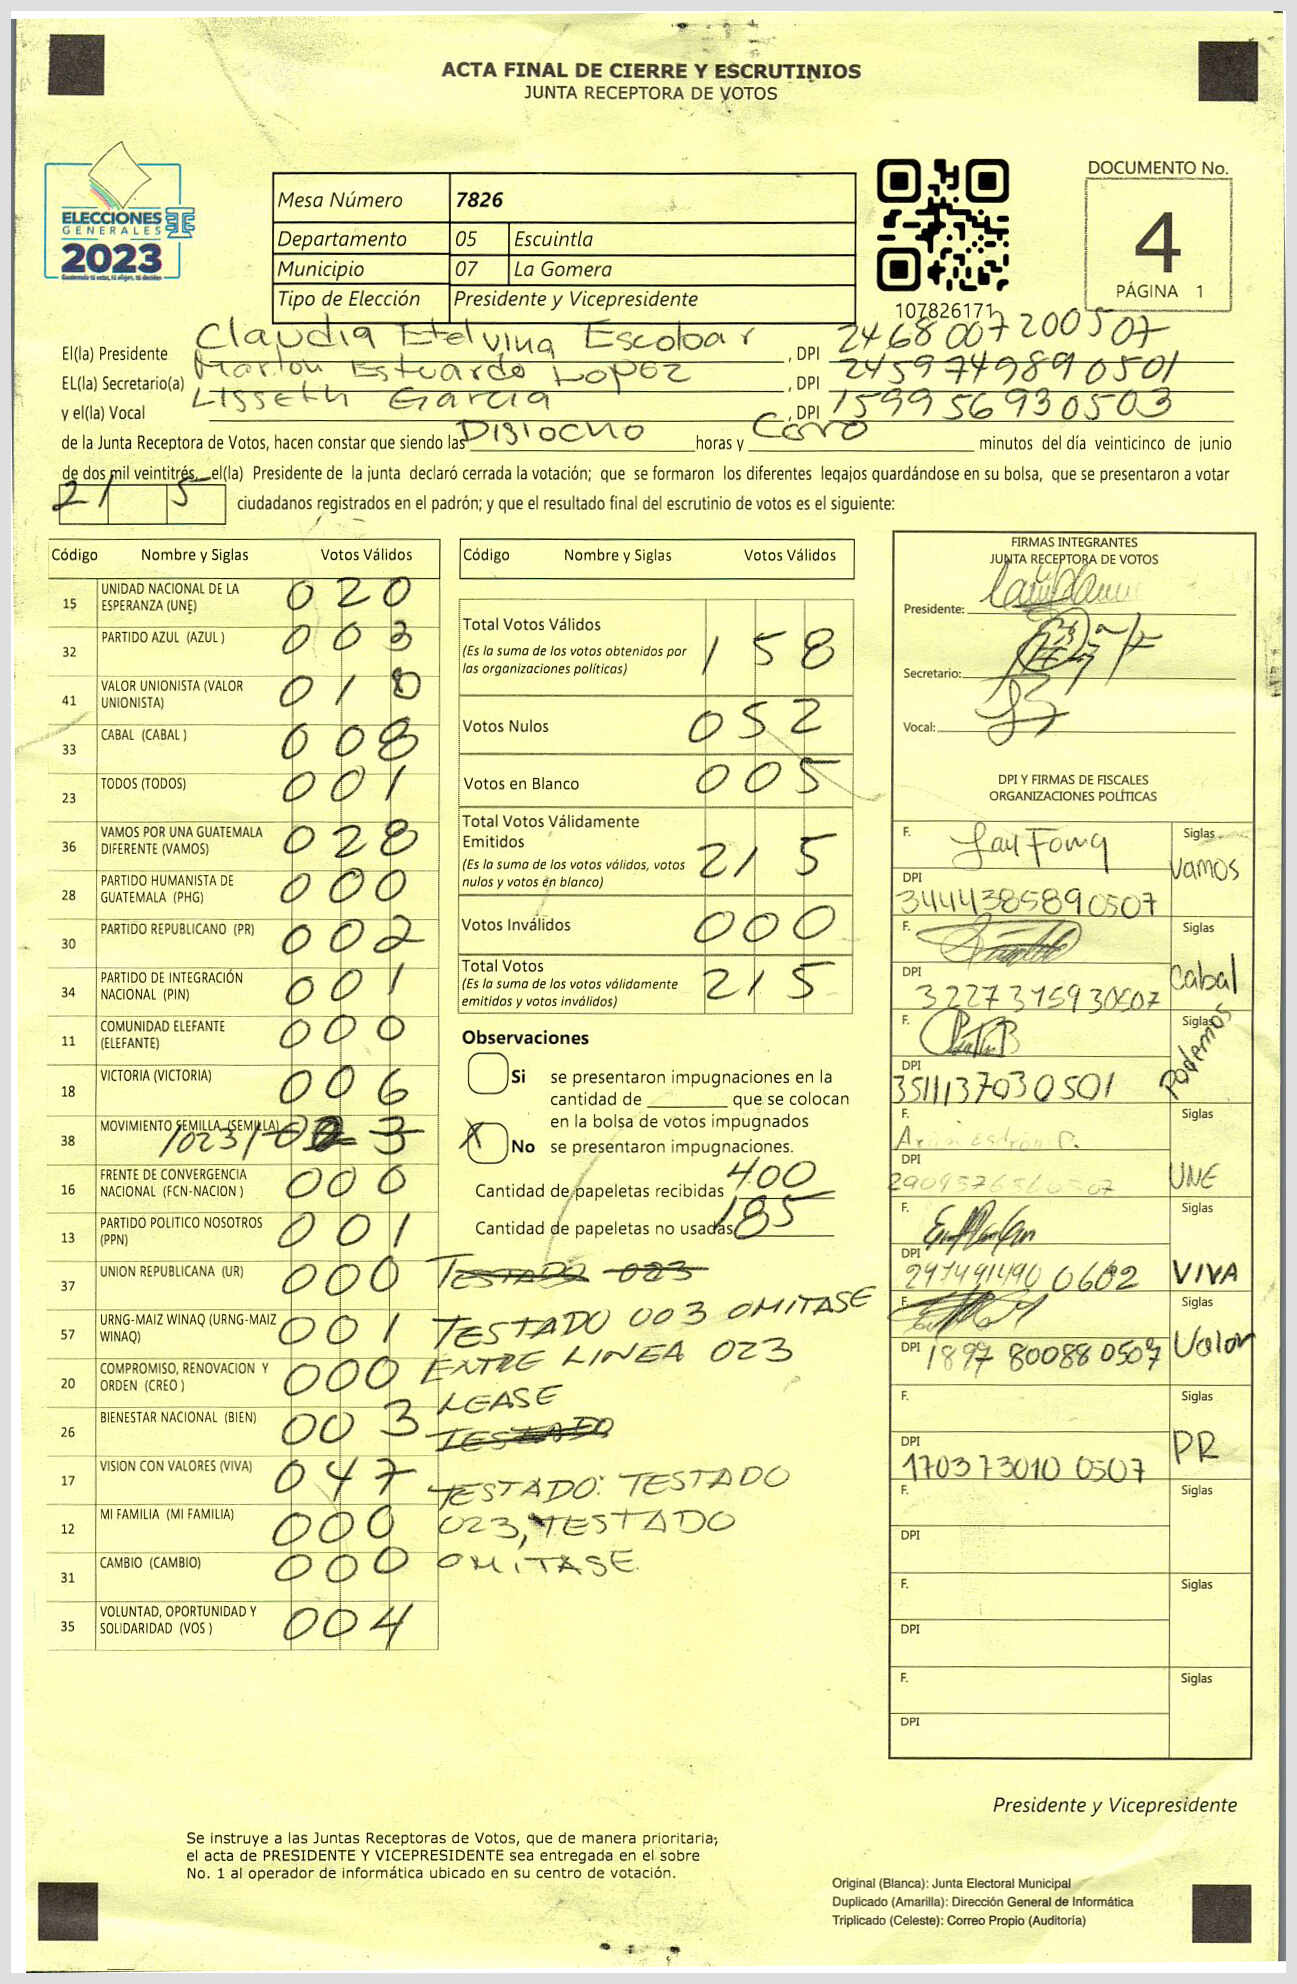 ACTA FINAL DE CIERRE Y ESCRUTINIOS
JUNTA RECEPTORA DE VOTOS
ELECCIONES
GENERALES
2023
Mesa Número 7826
Departamento 05 Escuintla
Municipio 07 La Gomera
Tipo de Elección Presidente y Vicepresidente
107826171
DOCUMENTO No.
4
PÁGINA 1
El(la) Presidente Claudia Etelvina Escobar , DPI 2468007200507
EL(la) Secretario(a) Marlon Estuardo Lopez , DPI 2459749890501
y el(la) Vocal Lisseth Garcia , DPI 159956930503
de la Junta Receptora de Votos, hacen constar que siendo las Disiocho horas y Cero minutos del día veinticinco de junio
de dos mil veintitrés, el(la) Presidente de la junta declaró cerrada la votación; que se formaron los diferentes legajos guardándose en su bolsa, que se presentaron a votar
215 ciudadanos registrados en el padrón; y que el resultado final del escrutinio de votos es el siguiente:
Código Nombre y Siglas Votos Válidos
15 UNIDAD NACIONAL DE LA ESPERANZA (UNE) 020
32 PARTIDO AZUL (AZUL ) 003
41 VALOR UNIONISTA (VALOR UNIONISTA) 010
33 CABAL (CABAL ) 008
23 TODOS (TODOS) 001
36 VAMOS POR UNA GUATEMALA DIFERENTE (VAMOS) 028
28 PARTIDO HUMANISTA DE GUATEMALA (PHG) 000
30 PARTIDO REPUBLICANO (PR) 002
34 PARTIDO DE INTEGRACIÓN NACIONAL (PIN) 001
11 COMUNIDAD ELEFANTE (ELEFANTE) 000
18 VICTORIA (VICTORIA) 006
38 MOVIMIENTO SEMILLA (SEMILLA) /023/
16 FRENTE DE CONVERGENCIA NACIONAL (FCN-NACION ) 000
13 PARTIDO POLITICO NOSOTROS (PPN) 001
37 UNION REPUBLICANA (UR) 000
57 URNG-MAIZ WINAQ (URNG-MAIZ WINAQ) 001
20 COMPROMISO, RENOVACION Y ORDEN (CREO ) 000
26 BIENESTAR NACIONAL (BIEN) 003
17 VISION CON VALORES (VIVA) 047
12 MI FAMILIA (MI FAMILIA) 000
31 CAMBIO (CAMBIO) 000
35 VOLUNTAD, OPORTUNIDAD Y SOLIDARIDAD (VOS ) 004
Código Nombre y Siglas Votos Válidos
Total Votos Válidos 158
(Es la suma de los votos obtenidos por
las organizaciones políticas)
Votos Nulos 052
Votos en Blanco 005
Total Votos Válidamente
Emitidos 215
(Es la suma de los votos válidos, votos
nulos y votos en blanco)
Votos Inválidos 000
Total Votos 215
(Es la suma de los votos válidamente
emitidos y votos inválidos)
Observaciones
Si se presentaron impugnaciones en la
cantidad de ________ que se colocan
en la bolsa de votos impugnados
X No se presentaron impugnaciones.
Cantidad de papeletas recibidas 400
Cantidad de papeletas no usadas 185
TESTADO 023
TESTADO 003 OMITASE
ENTRE LINEA 023
LEASE
TESTADO
TESTADO: TESTADO
023, TESTADO
OMITASE
FIRMAS INTEGRANTES
JUNTA RECEPTORA DE VOTOS
Presidente:
Secretario:
Vocal:
DPI Y FIRMAS DE FISCALES
ORGANIZACIONES POLÍTICAS
F. Siglas Vamos
DPI 3444385890507
F. Siglas Cabal
DPI 3227315930507
F. Siglas Podemos
DPI 3511137030501
F. Siglas UNE
DPI
F. Siglas VIVA
DPI 2971491490 0602
F. Siglas Valor
DPI 1897 80088 0507
F. Siglas PR
DPI 170373010 0507
F. Siglas
DPI
F. Siglas
DPI
F. Siglas
DPI
Presidente y Vicepresidente
Se instruye a las Juntas Receptoras de Votos, que de manera prioritaria;
el acta de PRESIDENTE Y VICEPRESIDENTE sea entregada en el sobre
No. 1 al operador de informática ubicado en su centro de votación.
Original (Blanca): Junta Electoral Municipal
Duplicado (Amarilla): Dirección General de Informática
Triplicado (Celeste): Correo Propio (Auditoría)